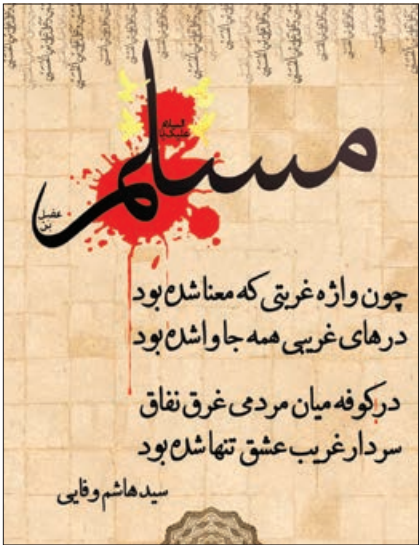 السلام علیک یا
مسلم
بن عقیل
چون واژه غربتی که معنا شده بود
درهای غریبی همه جا وا شده بود
درکوفه میان مردمی غرق نفاق
سردار غریب عشق تنها شده بود
سید هاشم وفایی